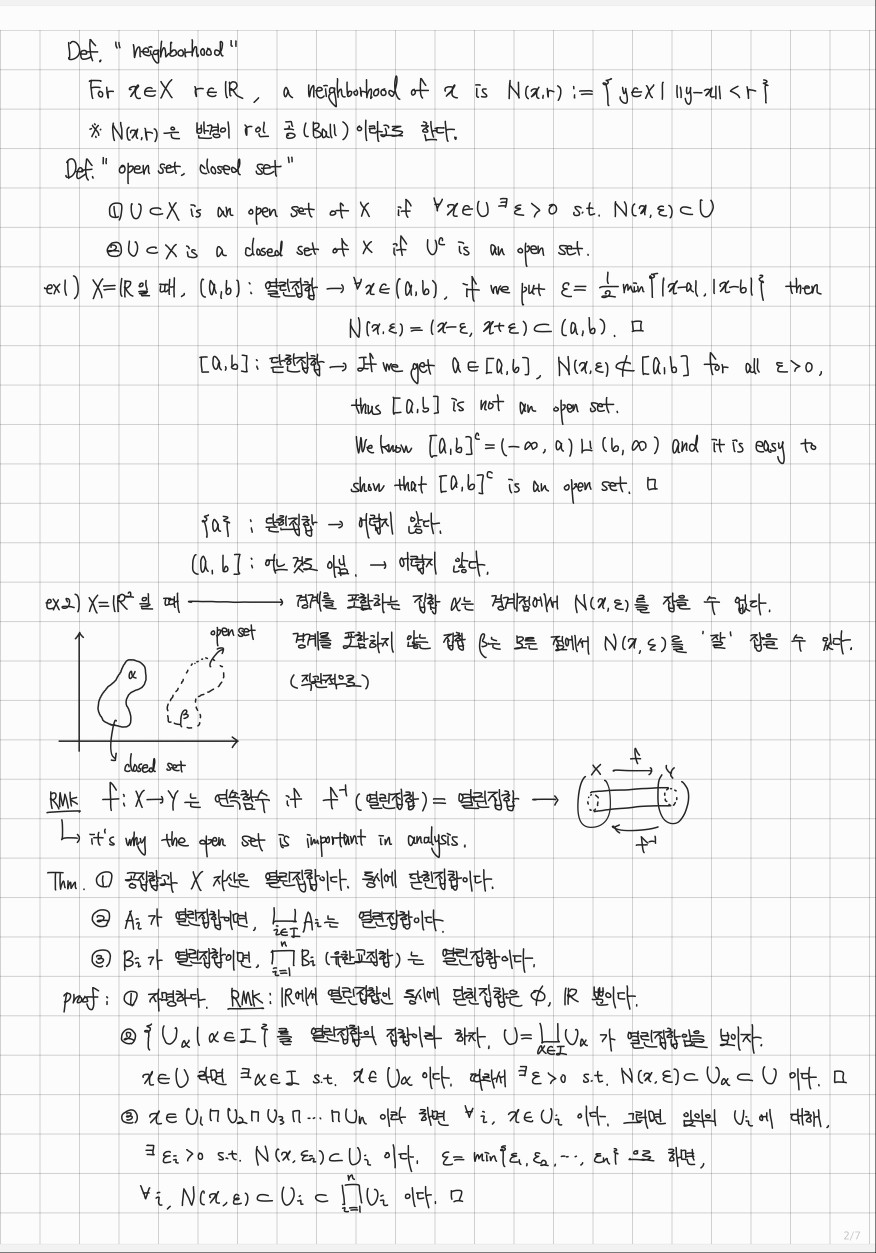 Def. "neighborhood"
For x∈X r∈ℝ, a neighborhood of x is N(x,r) := { y∈X | ||y-x|| < r }
※ N(x,r)은 반경이 r인 공(Ball)이라고도 한다.
Def. "open set, closed set"
① U⊂X is an open set of X if ∀x∈U ∃ε>0 s.t. N(x,ε)⊂U
② U⊂X is a closed set of X if Uᶜ is an open set.
ex1) X=ℝ일 때, (a,b) : 열린집합 → ∀x∈(a,b), if we put ε= 1/2 min{|x-a|,|x-b|} then
N(x,ε)=(x-ε, x+ε)⊂(a,b). □
[a,b] : 닫힌집합 → If we get a∈[a,b], N(x,ε)⊄[a,b] for all ε>0,
thus [a,b] is not an open set.
We know [a,b]ᶜ=(-∞,a)⊔(b,∞) and it is easy to
show that [a,b]ᶜ is an open set. □
{a} : 닫힌집합 → 어렵지 않다.
(a,b] : 어느 것도 아님. → 어렵지 않다.
ex2) X=ℝ²일 때 → 경계를 포함하는 집합 α는 경계점에서 N(x,ε)를 잡을 수 없다.
open set
경계를 포함하지 않는 집합 β는 모든 점에서 N(x,ε)를 '잘' 잡을 수 있다.
(직관적으로)
α
β
closed set
X f Y
RMK f:X→Y는 연속함수 if f⁻¹(열린집합)= 열린집합 →
f⁻¹
↳ it's why the open set is important in analysis.
Thm. ① 공집합과 X 자신은 열린집합이다. 동시에 닫힌집합이다.
② Aᵢ가 열린집합이면, ⊔_{i∈I} Aᵢ는 열린집합이다.
③ Bᵢ가 열린집합이면, ⊓_{i=1}^{n} Bᵢ (유한교집합)는 열린집합이다.
proof : ① 자명하다. RMK : ℝ에서 열린집합인 동시에 닫힌집합은 ∅, ℝ 뿐이다.
② { U_α | α∈I }를 열린집합의 집합이라 하자. U=⊔_{α∈I} U_α 가 열린집합임을 보이자.
x∈U 라면 ∃α∈I s.t. x∈U_α 이다. 따라서 ∃ε>0 s.t. N(x,ε)⊂U_α⊂U 이다. □
③ x∈U₁⊓U₂⊓U₃⊓…⊓Uₙ 이라 하면 ∀i, x∈Uᵢ 이다. 그러면 임의의 Uᵢ에 대해,
∃εᵢ>0 s.t. N(x,εᵢ)⊂Uᵢ 이다. ε= min{ε₁,ε₂,…,εₙ} 으로 하면,
∀i, N(x,ε)⊂Uᵢ⊂⊓_{i=1}^{n} Uᵢ 이다. □
2/7